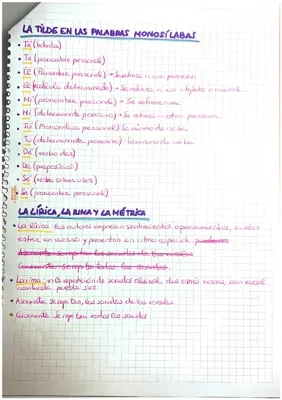 LA TILDE EN LAS PALABRAS MONOSÍLABAS
• Té (bebida)
• Te (pronombre personal)
• Él (Pronombre personal) → Se refiere a una persona.
• El (artículo determinado) → Se refiere a un objeto o animal.
• Mí (pronombre personal) → Se refiere a mí
• Mi (determinante posesivo) → Se refiere a otra persona.
• Tú (Pronombre personal) lo mismo de arriba.
• Tu (determinante posesivo) lo mismo de arriba
• Dé (verbo dar)
• De (preposición)
• Sé (verbo saber o ser)
• Se (pronombre personal)
LA LÍRICA, LA RIMA Y LA MÉTRICA
• La lírica: los autores expresan sentimientos o pensamientos, suelen
estar en verso y presentan un ritmo especial.
• La rima: es la repetición de sonidos al final de dos o más versos, con vocal
acentuada, puede ser
• Asonante: Se repiten los sonidos de las vocales
• Consonante: Se repiten todos los sonidos